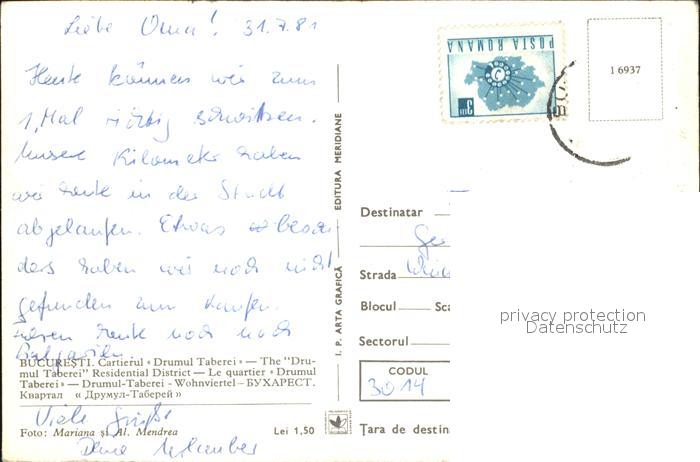 Liebe Oma! 31.7.81
Heute können wir zum
1. Mal richtig schwitzen.
Unsere Kilometer haben
wir heute in der Stadt
abgelaufen. Etwas beson-
ders haben wir noch nicht
gefunden zum Kaufen.
heute noch nach
Bulgarien.
BUCUREȘTI. Cartierul « Drumul Taberei » — The "Dru-
mul Taberei" Residential District — Le quartier « Drumul
Taberei » — Drumul-Taberei - Wohnviertel — БУХАРЕСТ.
Квартал « Друмул-Таберей »
Viele Grüße
Foto: Mariana și Al. Mendrea Lei 1,50
Deine
I. P. ARTA GRAFICĂ — EDITURA MERIDIANE
POSTA ROMANA
3 LEI
1 6937
Destinatar
Strada
Blocul Sca
Sectorul
CODUL
3014
Țara de destin
privacy protection
Datenschutz